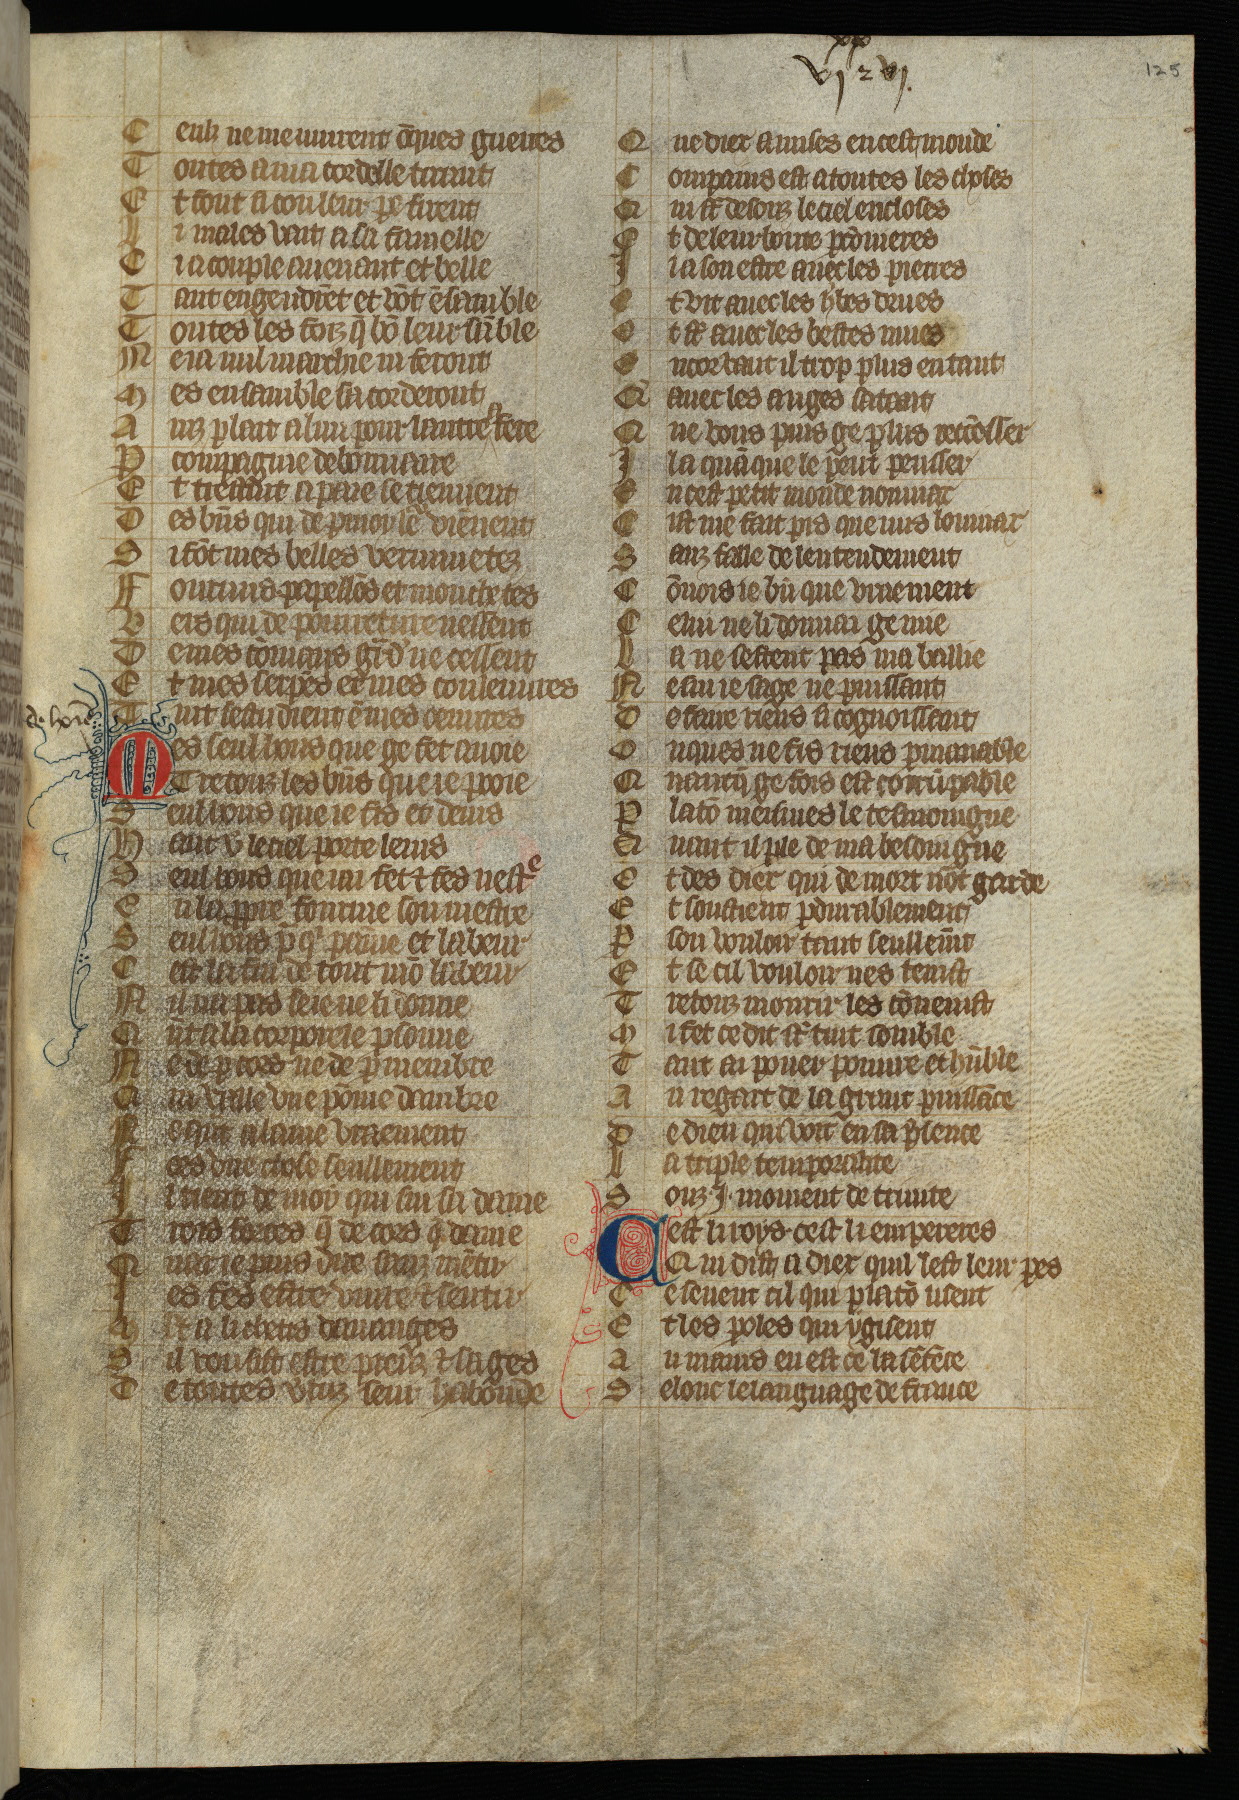 VIxx 2 vj.
125
C eulz ne me muirent o̅ques guerres
T outes a ma cordelle traient
E t font a couleur pe firent
L i males vait a sa famelle
C i a couple auenant et belle
T aut engendre̅t et vo̅t e̅samble
T outes les foiz q̅ bo̅ leur sa̅ble
M eia nul marchie ni feront
M es ensamble sa corderont
A inz plait a lun pour lautre fere
P compagnie debonnaire
E t trestout a paie se tienent
D es bie̅s qui de p moy le̅ vie̅nent
S i fo̅t mes belles verminetez
F ourmis papello̅s et mouchetes
V ers qui de pourreture nessent
D e mes co̅mans g̅r̅d̅ ne cessent
E t mes serpes et mes couleuures
T uit sestudient e̅ mes oeuures
de ho̅i̅e
M es seul hons que ge fet auoie
T retouz les bie̅s que ie pooie
S eul hons que ie fes et deuis
H aut v̅ le ciel porte leuis
S eul hons que iai fet & fes nestre
E n la ppre fourme son mestre
S eul hons p̅ q̅ͥ paine et labeur
C est la fin de tout mo̅ labeur
N il na pas se ie ne li donne
Q̅nt a la corporele psonne
N e de p cors ne de p menbre
Q ui vaille vne pome dambre
N e q̅nt a lame vraiement
F ors vne chose seullement
I l tient de moy qui sui sa dame
T rois forces q̅ de cors q̅ dame
Q uar ie puis dire sanz me̅tir
I es fes estre viure & sentir
M lt a li chetis dauanges
S il vousist estre preuz & sages
D e toutes v̅tuz seur habo̅nde
Q ue diex a mises en cest monde
C ompains est a toutes les choses
Q ui s̅t desouz le ciel encloses
E t de leur bonte p̅onieres
I l a son estre auec les pierres
E t vit auec les h̅bes drues
E t s̅t auec les bestes mues
E ncor vaut il trop plus en tant
Q̅ auec les anges satant
Q ue vous puis ge plus rece̅sser
I l a qua̅que le peut pensser
E n cest petit monde nouuiax
C ist me fait pis que nus louuiax
S anz falle de lentendement
C o̅nois ie bie̅ que vraiement
C elui ne li donnai ge mie
L a ne sestent pas ma baillie
N e sui ie sage ne puissant
D e faire riens si cognoissant
O nques ne fis riens pmanable
Q uanq̅ ge fois est corru̅pable
P lato̅ meismes le tesmoingne
Q uant il ple de ma besoingne
E t des diex qui de mort no̅t garde
E t soustient pdurablement
P son vouloir tant seullem̅t
E t se cil vouloir nes tenist
T retouz mourir les co̅uenist
M i fet ce dit s̅t tuit souible
T ant ai pouer poure et hu̅ble
A u regart de la grant puissa̅ce
D e dieu qui voit en sa p̅sence
L a triple temporalite
S ouz .I. moment de trinite
C est li roys cest li empereres
Q ui dist a diex quil est leur peres
C e seuent cil qui plato̅ lisent
E t les poles qui y gisent
A u mains en est ce la se̅te̅ce
S elonc le language de france